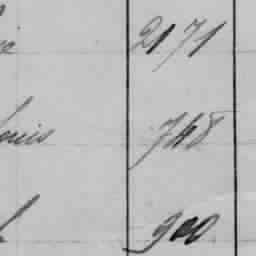 2171
ouis 748
900